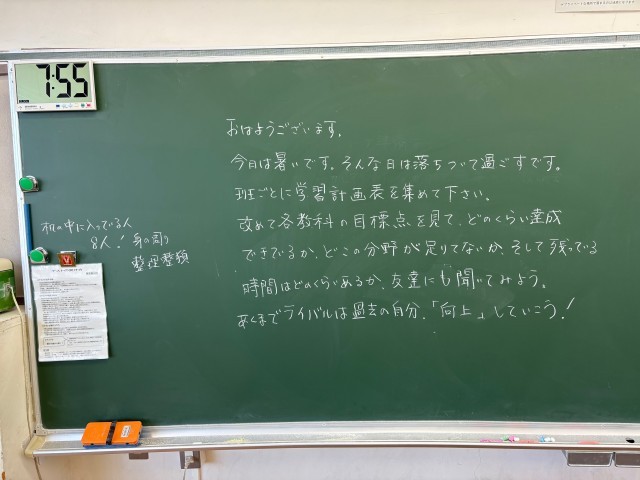 7:55
おはようございます。
今日は暑いです。そんな日は落ちついて過ごすです。
班ごとに学習計画表を集めて下さい。
改めて各教科の目標点を見て、どのくらい達成
できているか、どこの分野が足りてないか、そして残っている
時間はどのくらいあるか、友達にも聞いてみよう。
あくまでライバルは過去の自分、「向上」していこう!
机の中に入っている人
8人! 身の周り
整理整頓